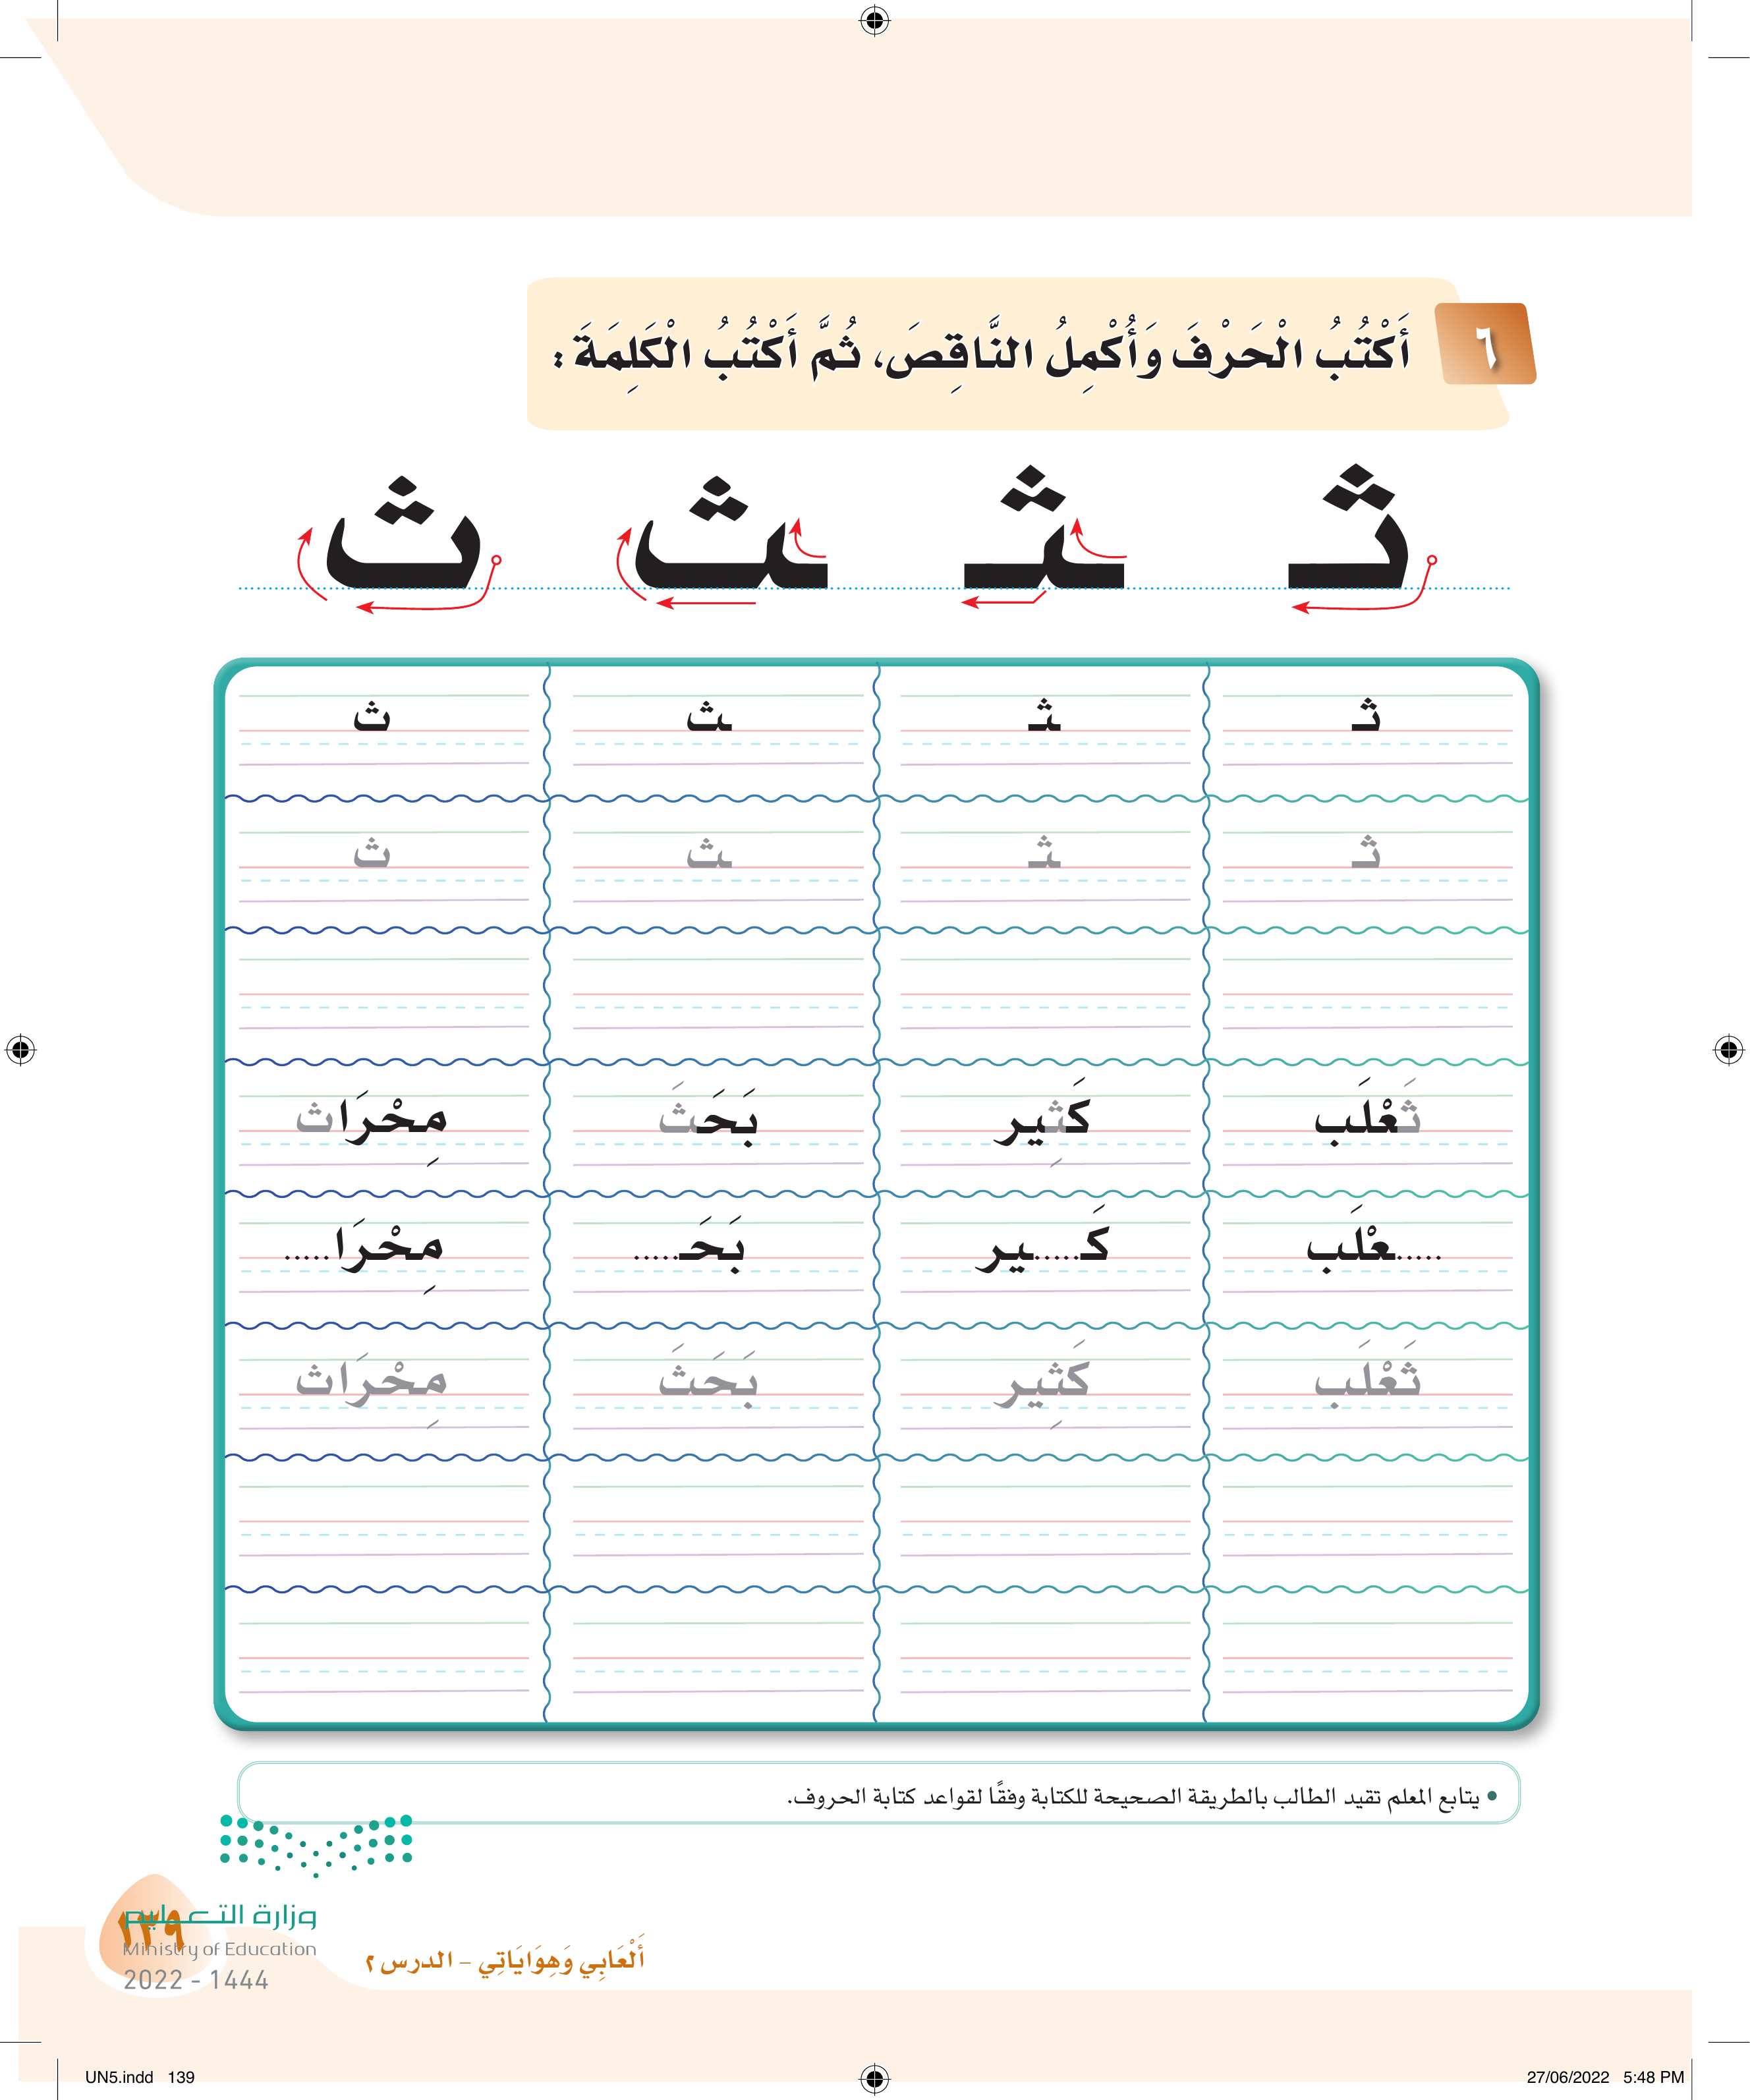 ٦ أَكْتُبُ الْحَرْفَ وَأُكْمِلُ النَّاقِصَ، ثُمَّ أَكْتُبُ الْكَلِمَةَ :
ثـ ـثـ ـث ث
ثـ ـثـ ـث ث
ثـ ـثـ ـث ث
ثَعْلَب كَثِير بَحَثَ مِحْرَاث
.....عْلَب كَـ.....ـير بَحَـ..... مِحْرَا.....
ثَعْلَب كَثِير بَحَثَ مِحْرَاث
• يتابع المعلم تقيد الطالب بالطريقة الصحيحة للكتابة وفقًا لقواعد كتابة الحروف.
وزارة التعليم
١٣٩
Ministry of Education
2022 - 1444
أَلْعَابِي وَهِوَايَاتِي - الدرس ٢
UN5.indd 139
27/06/2022 5:48 PM